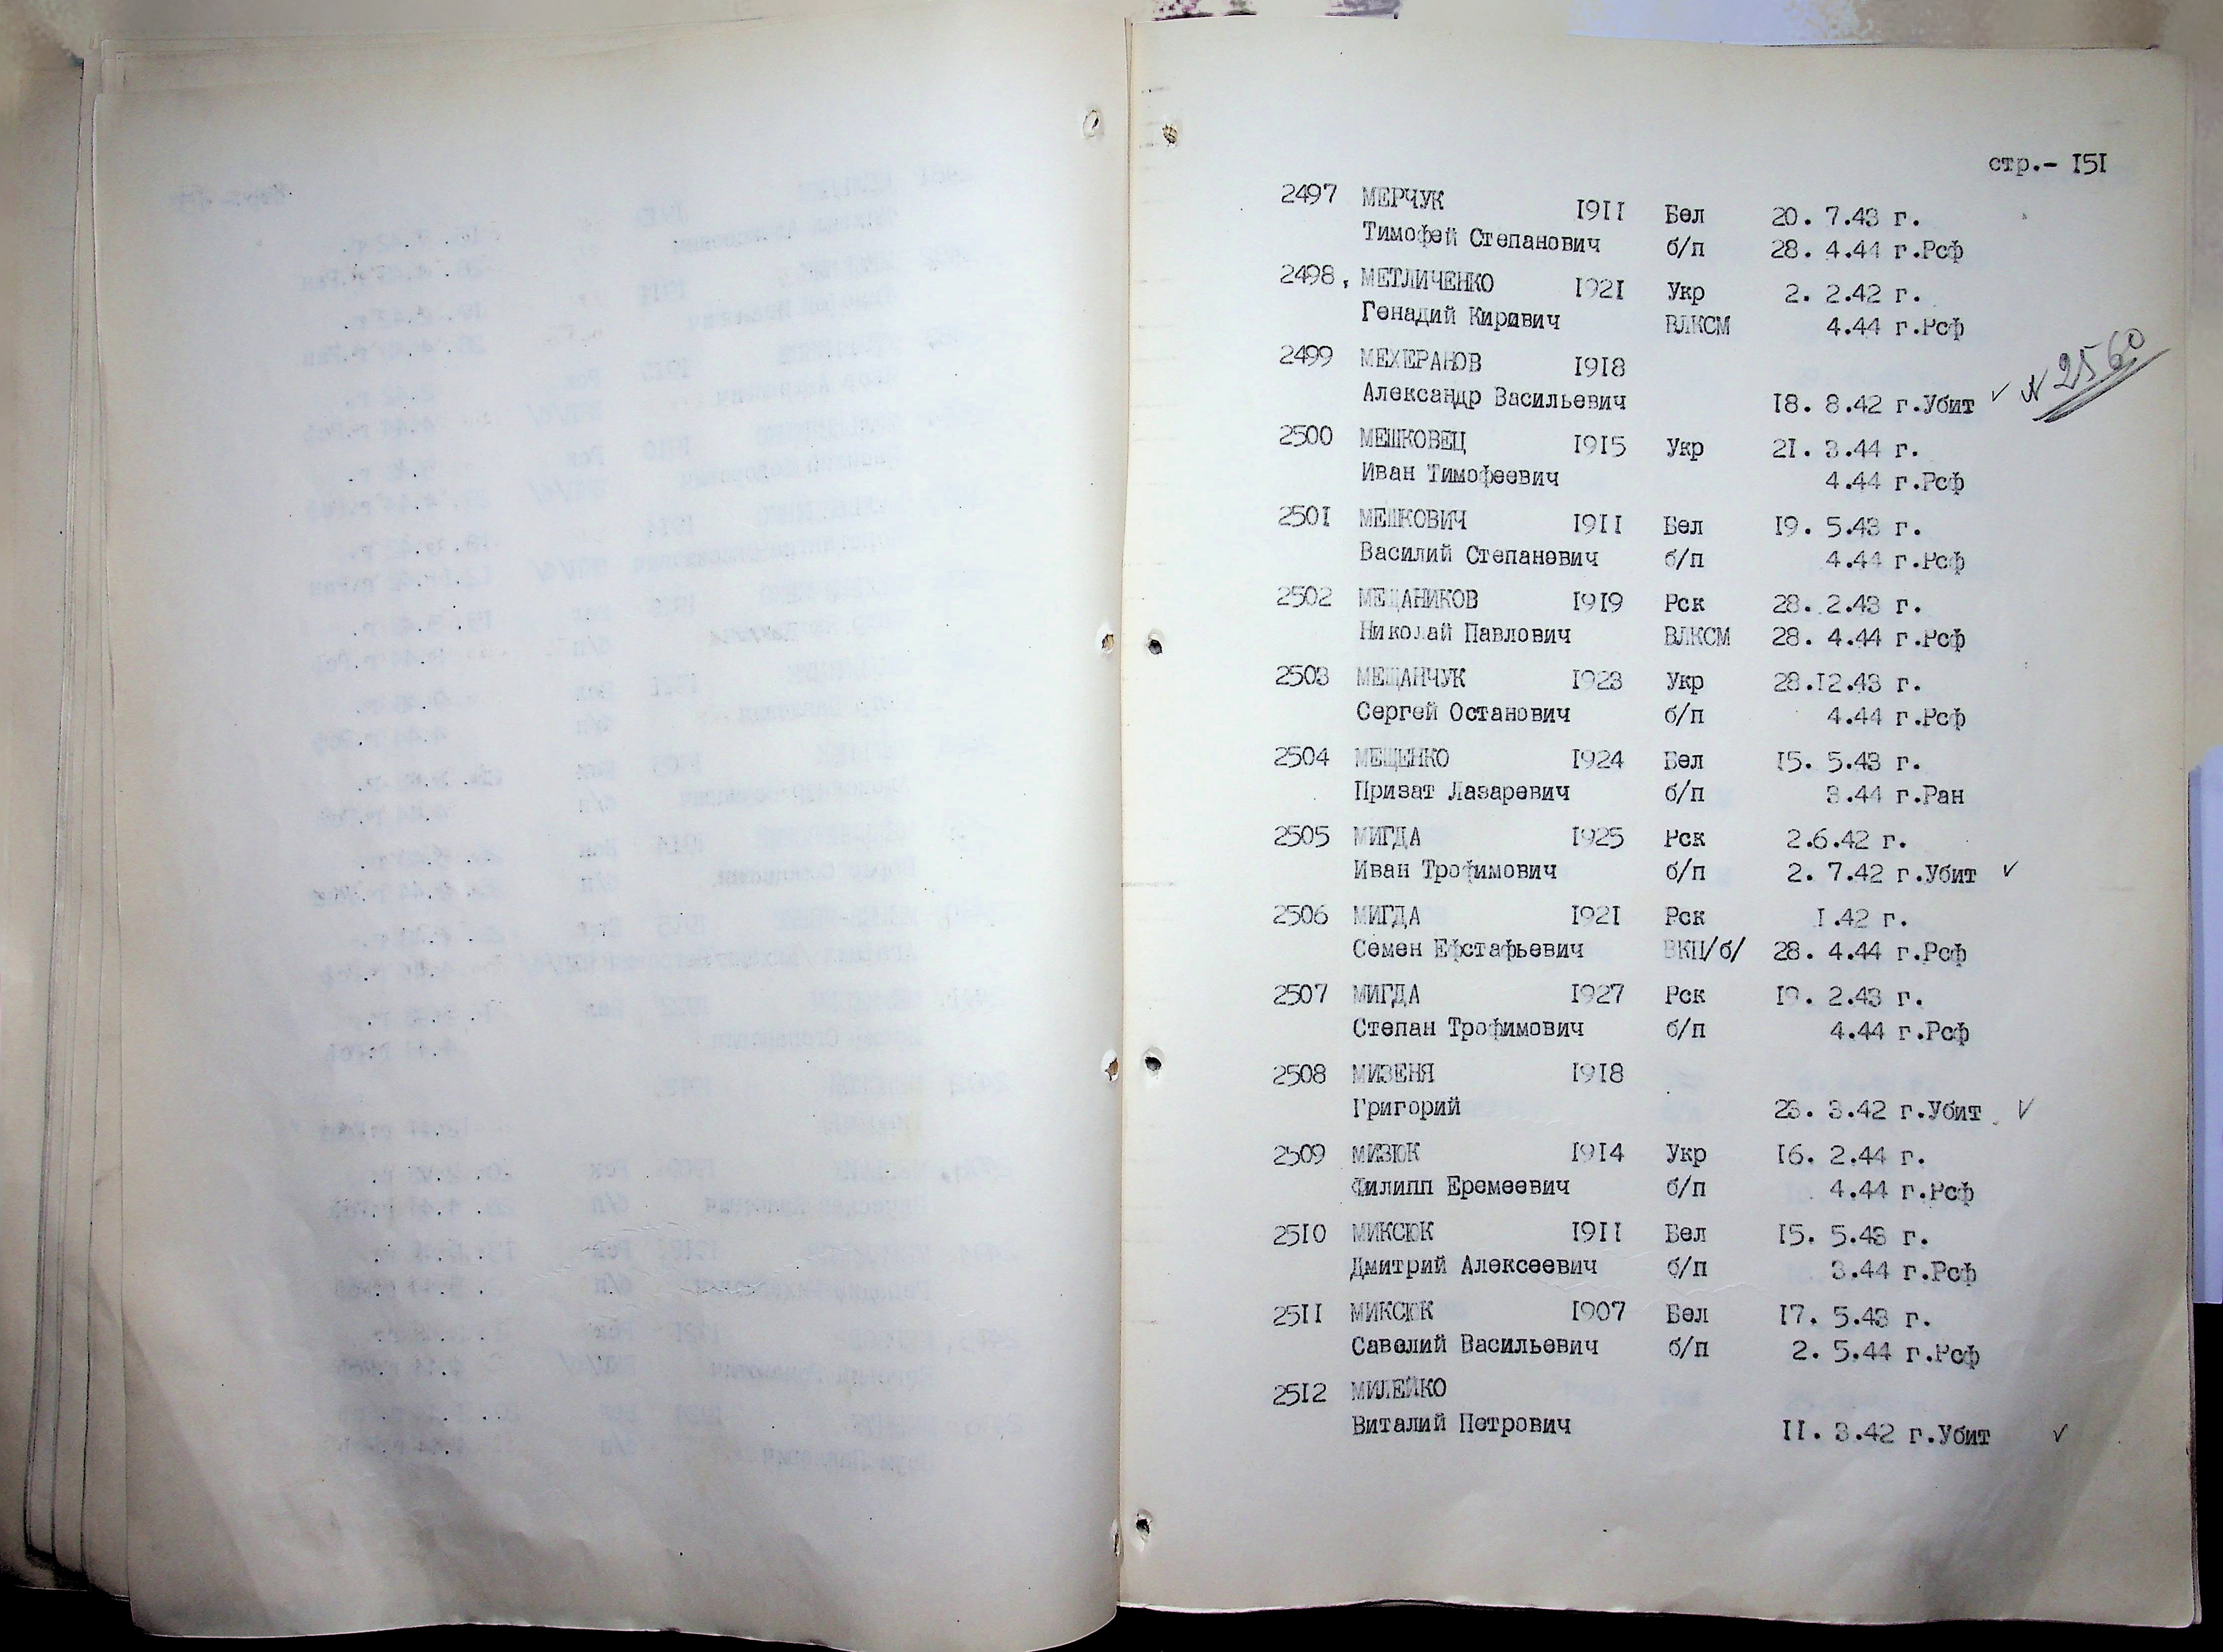 стр.- 151
2497 МЕРЧУК 1911 Бел 20. 7.43 г.
Тимофей Степанович б/п 28. 4.44 г.Рсф
2498, МЕТЛИЧЕНКО 1921 Укр 2. 2.42 г.
Генадий Киривич ВЛКСМ 4.44 г.Рсф
2499 МЕХЕРАНОВ 1918
Александр Васильевич 18. 8.42 г.Убит ✓ № 2560
2500 МЕШКОВЕЦ 1915 Укр 21. 3.44 г.
Иван Тимофеевич 4.44 г.Рсф
2501 МЕШКОВИЧ 1911 Бел 19. 5.43 г.
Василий Степанович б/п 4.44 г.Рсф
2502 МЕЩАНИКОВ 1919 Рск 28. 2.43 г.
Николай Павлович ВЛКСМ 28. 4.44 г.Рсф
2503 МЕЩАНЧУК 1923 Укр 28.12.43 г.
Сергей Останович б/п 4.44 г.Рсф
2504 МЕЩЕНКО 1924 Бел 15. 5.43 г.
Приват Лазаревич б/п 3.44 г.Ран
2505 МИГДА 1925 Рск 2.6.42 г.
Иван Трофимович б/п 2. 7.42 г.Убит ✓
2506 МИГДА 1921 Рск 1.42 г.
Семен Ефстафьевич ВКП/б/ 28. 4.44 г.Рсф
2507 МИГДА 1927 Рск 19. 2.43 г.
Степан Трофимович б/п 4.44 г.Рсф
2508 МИЗЕНЯ 1918
Григорий 23. 3.42 г.Убит ✓
2509 МИЗЮК 1914 Укр 16. 2.44 г.
Филипп Еремеевич б/п 4.44 г.Рсф
2510 МИКСЮК 1911 Бел 15. 5.43 г.
Дмитрий Алексеевич б/п 3.44 г.Рсф
2511 МИКСЮК 1907 Бел 17. 5.43 г.
Савелий Васильевич б/п 2. 5.44 г.Рсф
2512 МИЛЕЙКО
Виталий Петрович 11. 3.42 г.Убит ✓